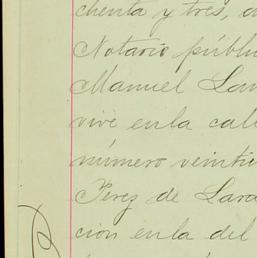 chenta y tres, a
Notario públi
Manuel
vive en la cal
número veinti
Perez de Lara
cion en la del